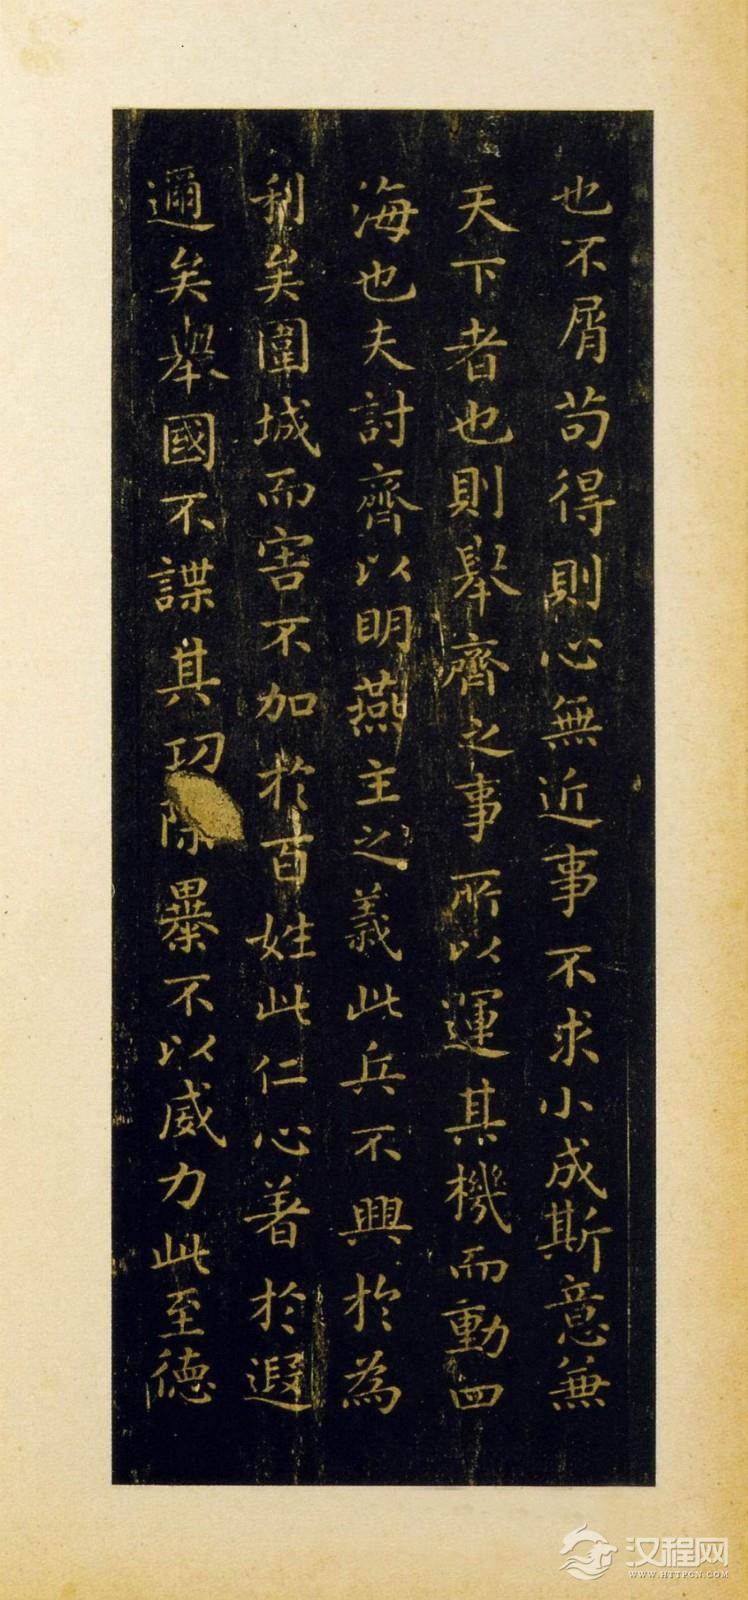 也不屑苟得則心無近事不求小成斯意兼
天下者也則舉齊之事所以運其機而動四
海也夫討齊以明燕主之義此兵不興於為
利矣圍城而害不加於百姓此仁心著於遐
邇矣舉國不謀其功除暴不以威力此至德
汉程网
WWW.HTTPCN.COM